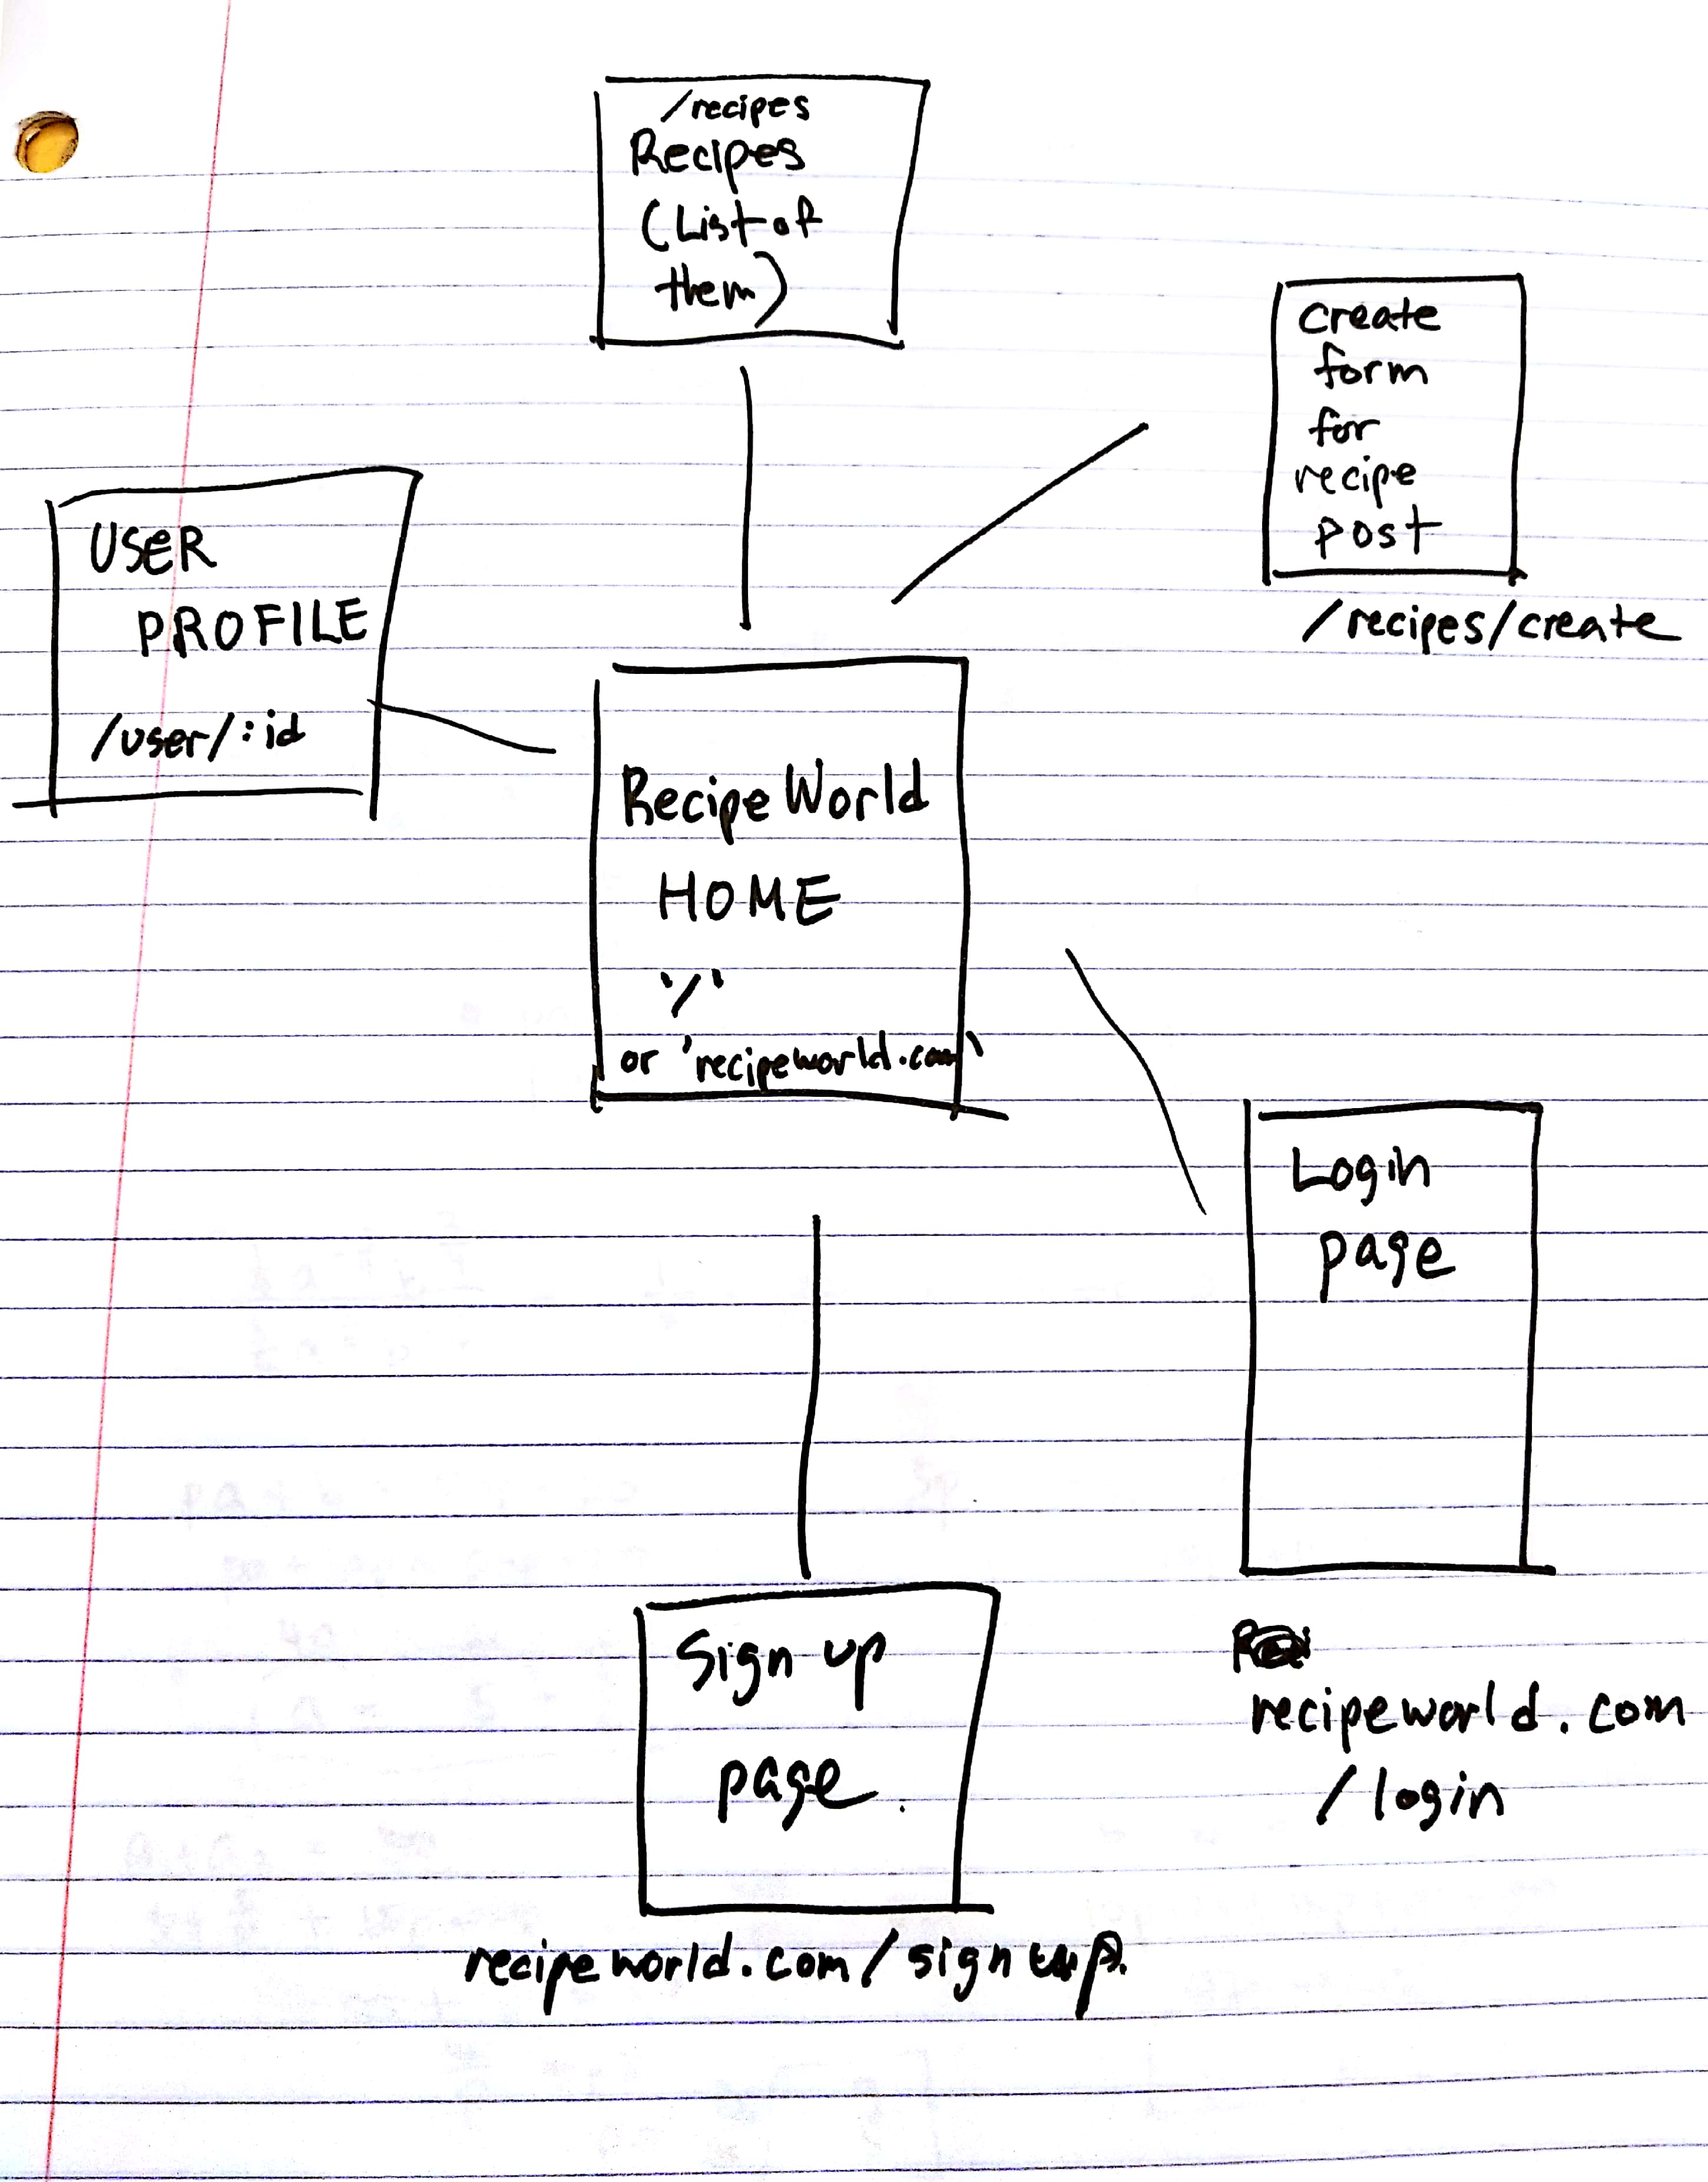 /recipes
Recipes
(List of
them)
create
form
for
recipe
post
/recipes/create
USER
PROFILE
/user/:id
Recipe World
HOME
'/'
or 'recipeworld.com'
Login
page
recipeworld.com
/login
Sign up
page.
recipeworld.com/signup.